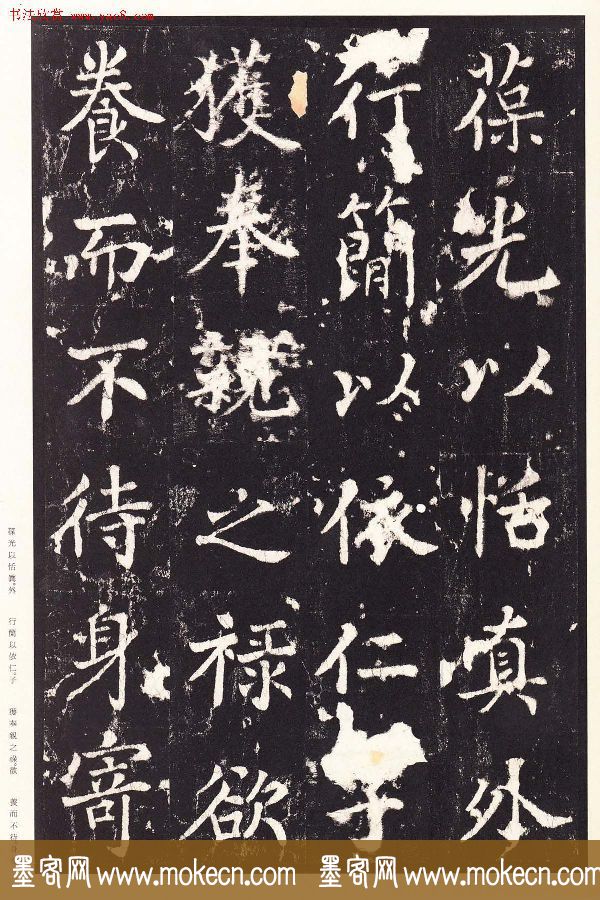 书法欣赏 www.yac8.com
葆光以恬真外
行簡以依仁子
獲奉親之祿欲
養而不待身寄
葆光以恬真。外
行簡以依仁。子
獲奉親之祿。欲
養而不待
墨客网 www.mokecn.com 墨客网 www.mokecn.com